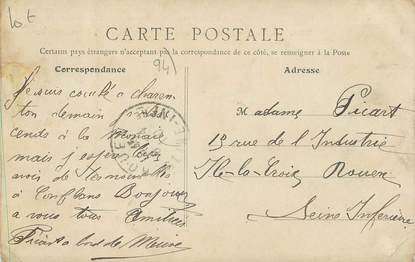 lot
CARTE POSTALE
Certains pays étrangers n'acceptant pas la correspondance de ce côté, se renseigner à la Poste
Correspondance
94
Adresse
Je suis couché a charen
ton demain je
cends à la
mais j'espère bien
avoir de tes
a Conflans Bonjour
a vous tous Amitiés
Picart a bord de Meuse
Madame Picart
19 rue de l'Industrie
Ile-la-Croix Rouen
Seine Inférieure